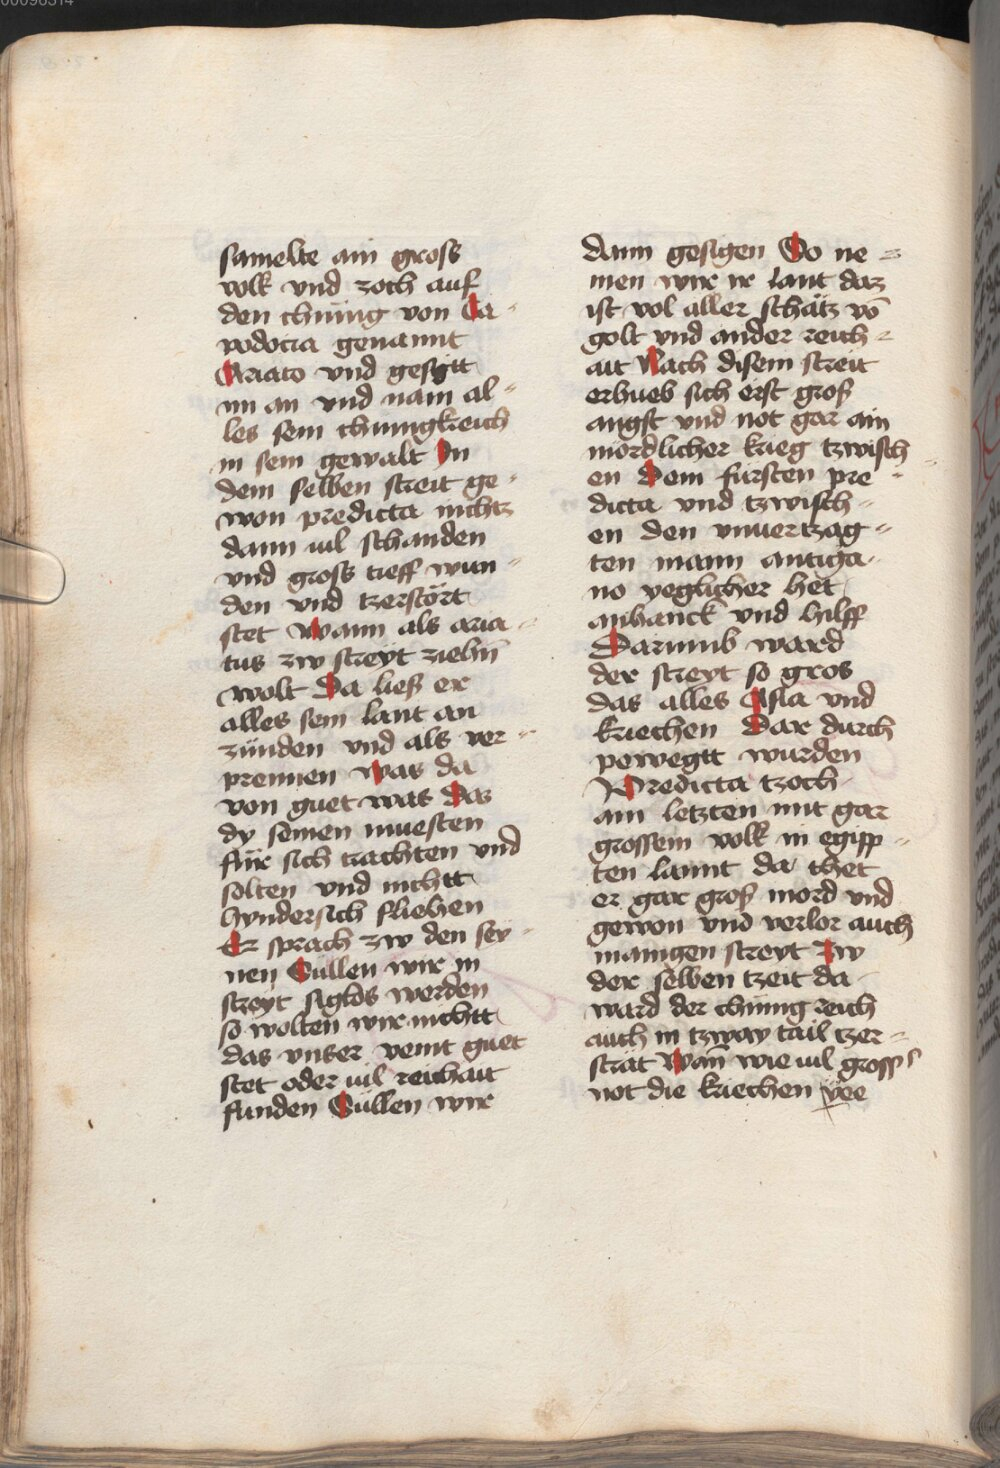 samelte ain gross
volk vnd zoch auf
den chuing von Ca-
podocia genannt
Ariato vnd gesigtt
im an vnd nam al-
les sein chuingkreich
in sein gewalt In
dem selben streit ge-
won predicta nichtz
dann uil schanden
vnd gross tieff wun-
den vnd tzerstört
stet Wann als aria-
tus zw streyt ziehn
wolt Da ließ er
alles sein lant an
zünden vnd als ver-
prennen Was da
von guet was Daz
dy seinen muesten
für sich trachten vnd
solten vnd nichtt
hyndersich fliehen
Er sprach zw den sey-
nen Sullen wir in
streyt siglos werden
so wolten wir nichtt
das vnser veint guet
stet oder uil reichait
funden Sullen wir
dann gesigen So ne-
men wir ir lant daz
ist vol aller schätz vō
golt vnd ander reich-
ait Nach disem streit
erhueb sich erst groß
angst vnd not gar ain
mördlicher krieg tzwisch-
en Dem fürsten pre-
dicta vnd tzwisch-
en den vnuertzag-
ten mann antiga-
no yeglicher het
anhanck vnd hilff
Darumb ward
der streyt so gros
das alles Asia vnd
kriechen Dar durch
pewegtt wurden
Predicta tzoch
am letzten mit gar
grossem volk in egipp-
ten lannt da thet
er gar groß mord vnd
gewon vnd verlor auch
manigen streyt Zw
der selben tzeit da
ward der chuing reich
auch in tzway tail tzer-
strät Wan wie uil gross
not die kriechen yee